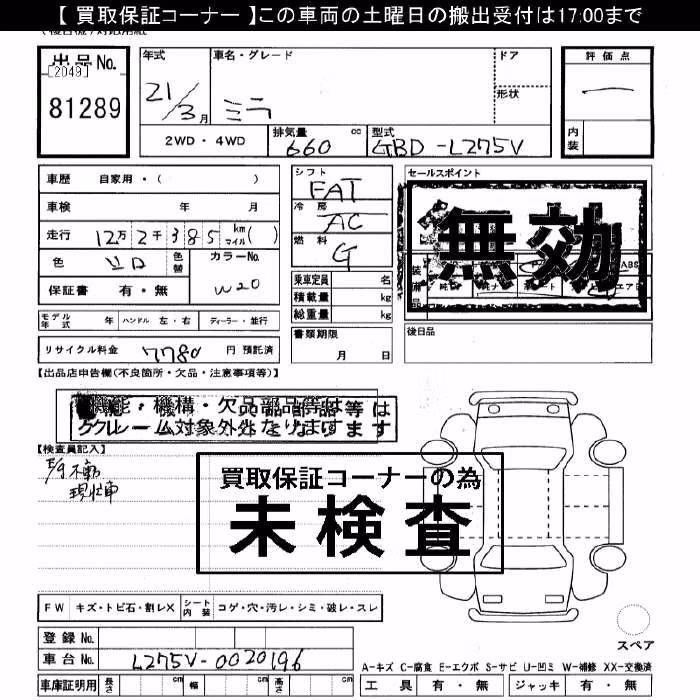 【 買取保証コーナー 】この車両の土曜日の搬出受付は17:00まで
出品No.
[2049]
81289
年式
21/3月
車名・グレード
ミラ
ドア
形状
評価点
内装
2WD・4WD
排気量 660 cc
型式 GBD-L275V
車歴 自家用・( )
車検 年 月
走行 12万2千385 km マイル( )
色 シロ 色替
カラーNo. W20
保証書 有・無
モデル年式 年 ハンドル 左・右 ディーラー・並行
リサイクル料金 7780 円 預託済
シフト FAT
冷房 AC
燃料 G
乗車定員 名
積載量 kg
総重量 kg
書類期限
月 日
セールスポイント
無効
ABS
エアB
後日品
【出品店申告欄(不良箇所・欠品・注意事項等)】
機能・機構・欠品部品等は
クレーム対象外となります
【検査員記入】
E/g不動
現状車
買取保証コーナーの為
未検査
FW キズ・トビ石・割レX シート内装 コゲ・穴・汚レ・シミ・破レ・スレ
登録No.
車台No. L275V-0020196
車庫証明用 長さ cm 幅 cm 高さ cm
スペア
A-キズ C-腐食 E-エクボ S-サビ U-凹ミ W-補修 XX-交換済
工具 有・無 ジャッキ 有・無